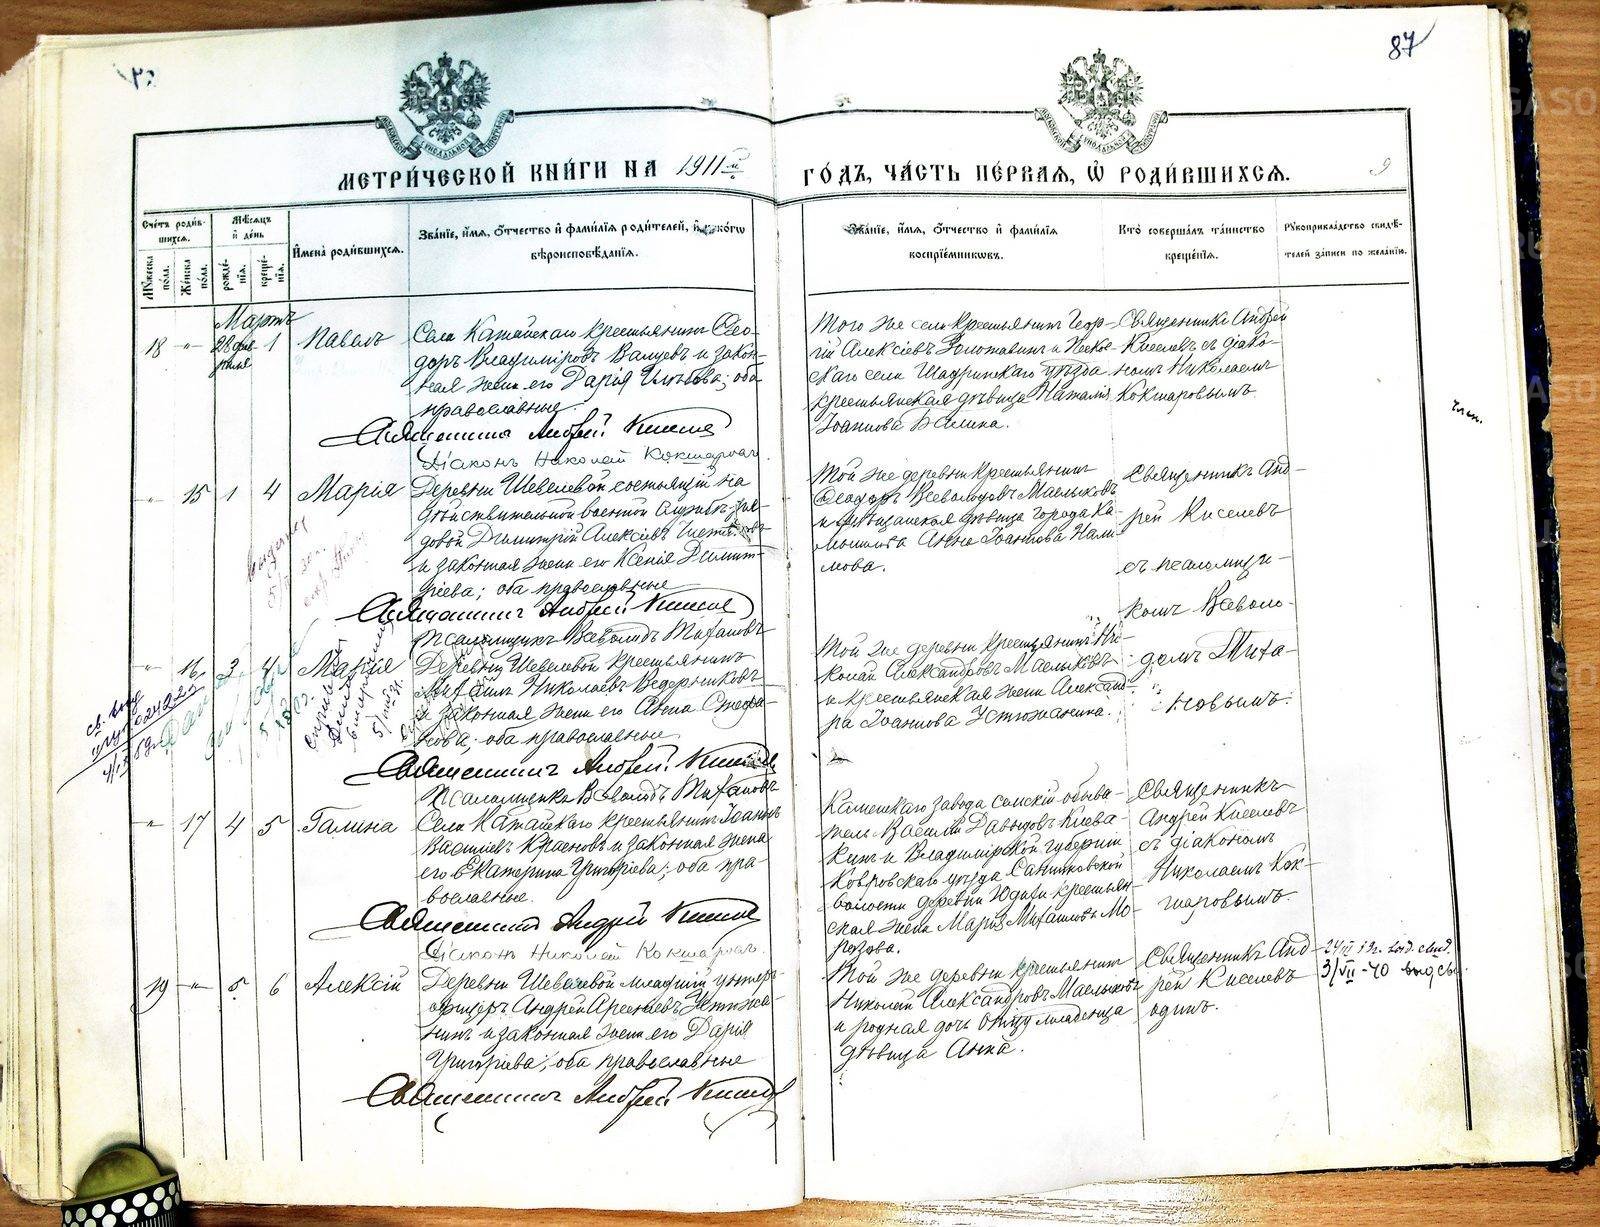 87
МЕТРИ́ЧЕСКОЙ КНИ́ГИ НА 1911й
ГО́ДЪ, ЧА́СТЬ ПЕ́РВАЯ, Ѿ РОДИ́ВШИХСЯ.
9
Счетъ роди́в-
шихся.
Мꙋжеска
по́ла.
Же́нска
по́ла.
Мѣ́сяцъ
и҆ де́нь
рожде́-
нїя.
креще́-
нїя.
И҆мена̀ роди́вшихся.
Зва́нїе, и҆́мя, ѻ҆́тчество и҆ фами́лїя роди́телей, и҆ како́гѡ
вѣроисповѣ́данїя.
Зва́нїе, и҆́мя, ѻ҆́тчество и҆ фами́лїя
воспрїе́мникѡвъ.
Кто̀ соверша́лъ та́инство
креще́нїя.
Рꙋкоприкла́дство свидѣ́-
телей за́писи по жела́нїю.
Мартъ
18 -"- 28 фев-
раля 1 Павелъ
Села Катайскаго крестьянинъ Ѳео-
доръ Владиміровъ и закон-
ная жена его Дарія; оба
православные.
Священникъ Андрей Киселев
Діаконъ Николай Кокшаровъ
Того же села крестьянинъ Геор-
гій Алексіевъ Золотавинъ и Песков-
скаго села Шадринскаго уѣзда
крестьянская дѣвица Наталія
Іоаннова Балина.
Священникъ Андрей
Киселевъ съ діако-
номъ Николаемъ
Кокшаровымъ
-"- 15 1 4 Марія
Деревни Шевелевой состоящій на
дѣйствительной военной службѣ ря-
довой Димитрій Алексіевъ
и законная жена его Ксенія Димит-
ріева; оба православные
Священникъ Андрей Киселев
Псаломщикъ Всеволодъ Тихановъ
Той же деревни крестьянинъ
Ѳеодоръ Всеволодовъ Маслыковъ
и мѣщанская дѣвица города Ка-
мышлова Анна Іоаннова Нали-
мова.
Священникъ Анд-
рей Киселевъ
съ псаломщи-
комъ Всеволо-
домъ Тиха-
новымъ.
-"- 16 3 4 Марія
Деревни Шевелевой крестьянинъ
Михаилъ Николаевъ Ведерниковъ
и законная жена его Анна Стефа-
нова; оба православные
Священникъ Андрей Киселев
Псаломщикъ Всеволодъ Тихановъ
Той же деревни крестьянинъ Ни-
колай Александровъ Маслыковъ
и крестьянская жена Александ-
ра Іоаннова Устюжанина.
-"- 17 4 5 Галина
Села Катайскаго крестьянинъ Іоаннъ
Василіевъ Красновъ и законная жена
его Екатерина Григоріева; оба пра-
вославные.
Священникъ Андрей Киселев
Діаконъ Николай Кокшаровъ.
Каменскаго завода сельскій обыва-
тель Василій Давыдовъ Клева-
кинъ и Владимірской губерніи
Ковровскаго уѣзда Санниковской
волости деревни Юдихи крестьян-
ская жена Марія Михаилова Мо-
розова.
Священникъ
Андрей Киселевъ
съ діакономъ
Николаемъ Кок-
шаровымъ.
19 -"- 5 6 Алексій
Деревни Шевелевой младшій унтеръ-
офицеръ Андрей Арсеніевъ Устюжа-
нинъ и законная жена его Дарія
Григоріева; оба православные
Священникъ Андрей Киселев
Той же деревни крестьянинъ
Николай Александровъ Маслыковъ
и родная дочь отцу младенца
дѣвица Анна.
Священникъ Анд-
рей Киселевъ
одинъ.
3/VII-40 выд св.